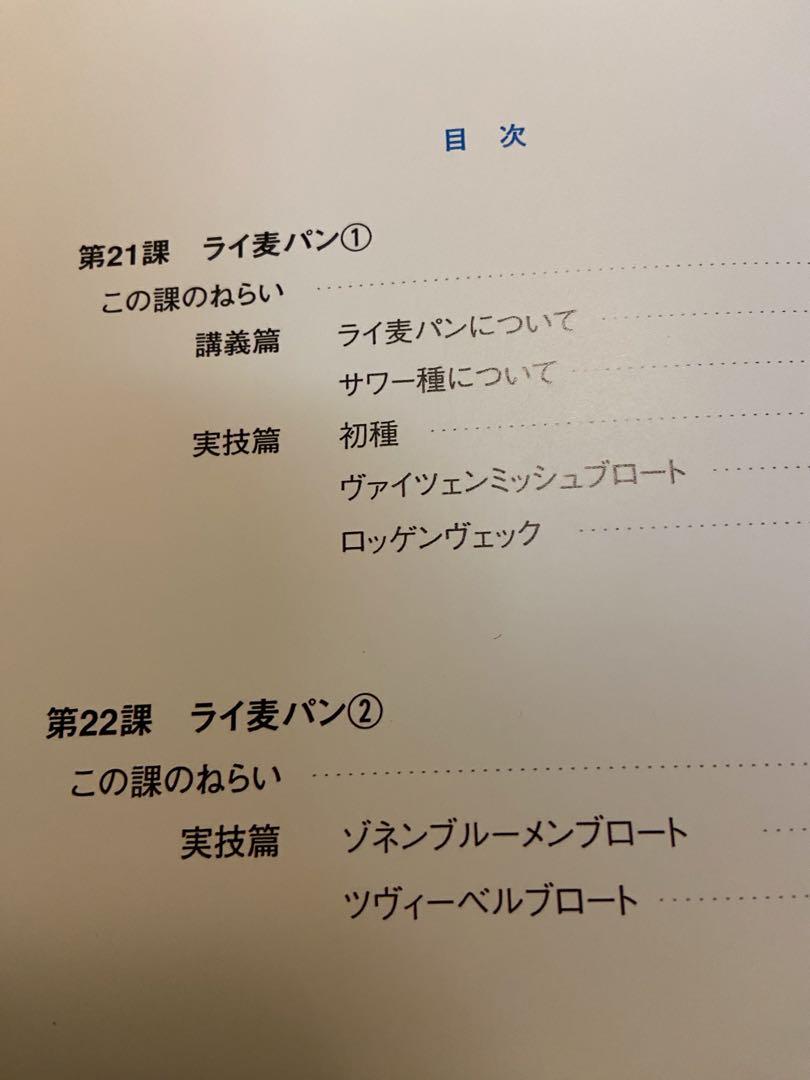 目 次
第21課 ライ麦パン①
この課のねらい
講義篇 ライ麦パンについて
サワー種について
実技篇 初種
ヴァイツェンミッシュブロート
ロッゲンヴェック
第22課 ライ麦パン②
この課のねらい
実技篇 ゾネンブルーメンブロート
ツヴィーベルブロート